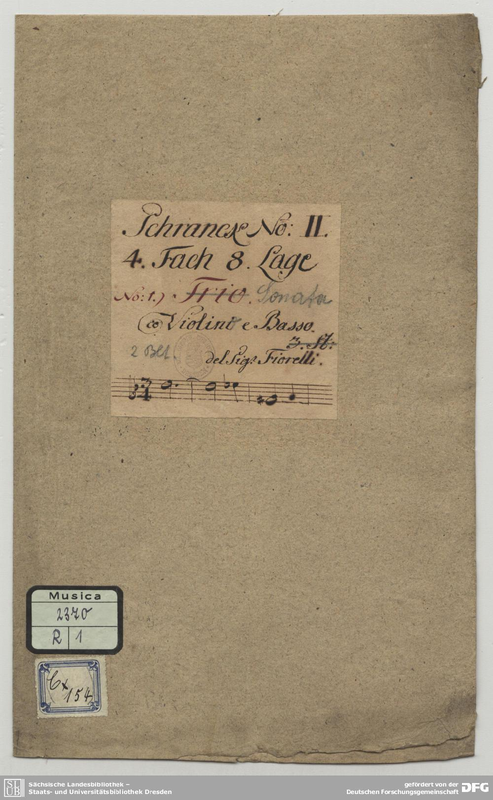 Schrancx No: II.
4. Fach 8. Lage
No: 1.) Trio. Sonata
Violino e Basso.
3. St:
2 Bl.
del Sigr Fiorelli.
3/4
Musica
2370
R 1
Cx
154
SLUB
Sächsische Landesbibliothek –
Staats- und Universitätsbibliothek Dresden
gefördert von der
Deutschen Forschungsgemeinschaft DFG